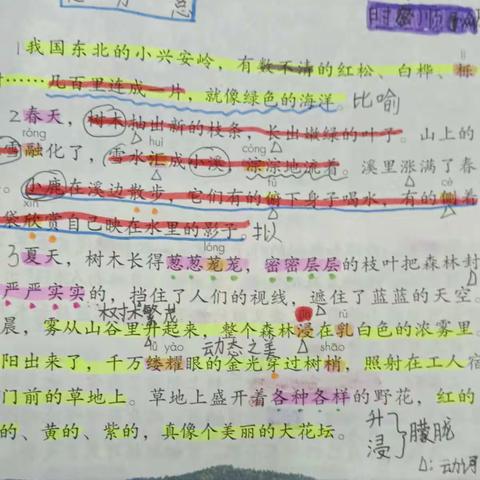 1我国东北的小兴安岭，有数不清的红松、白桦、栎
……几百里连成一片，就像绿色的海洋。比喻
2春天，树木抽出新的枝条，长出嫩绿的叶子。山上的
róng huì cóng
雪融化了，雪水汇成小溪，淙淙地流着。溪里涨满了春
小鹿在溪边散步，它们有的俯下身子喝水，有的侧着
xīn fǔ cè
袋欣赏自己映在水里的影子。拟
lóng
3夏天，树木长得葱葱茏茏，密密层层的枝叶把森林封
严严实实的，挡住了人们的视线，遮住了蓝蓝的天空。
树木繁茂
rǔ
晨，雾从山谷里升起来，整个森林浸在乳白色的浓雾里。
lǚ yào 动态之美 shāo
阳出来了，千万缕耀眼的金光穿过树梢，照射在工人宿
门前的草地上。草地上盛开着各种各样的野花，红的
的、黄的、紫的，真像个美丽的大花坛。
升
浸
朦胧
△：动词